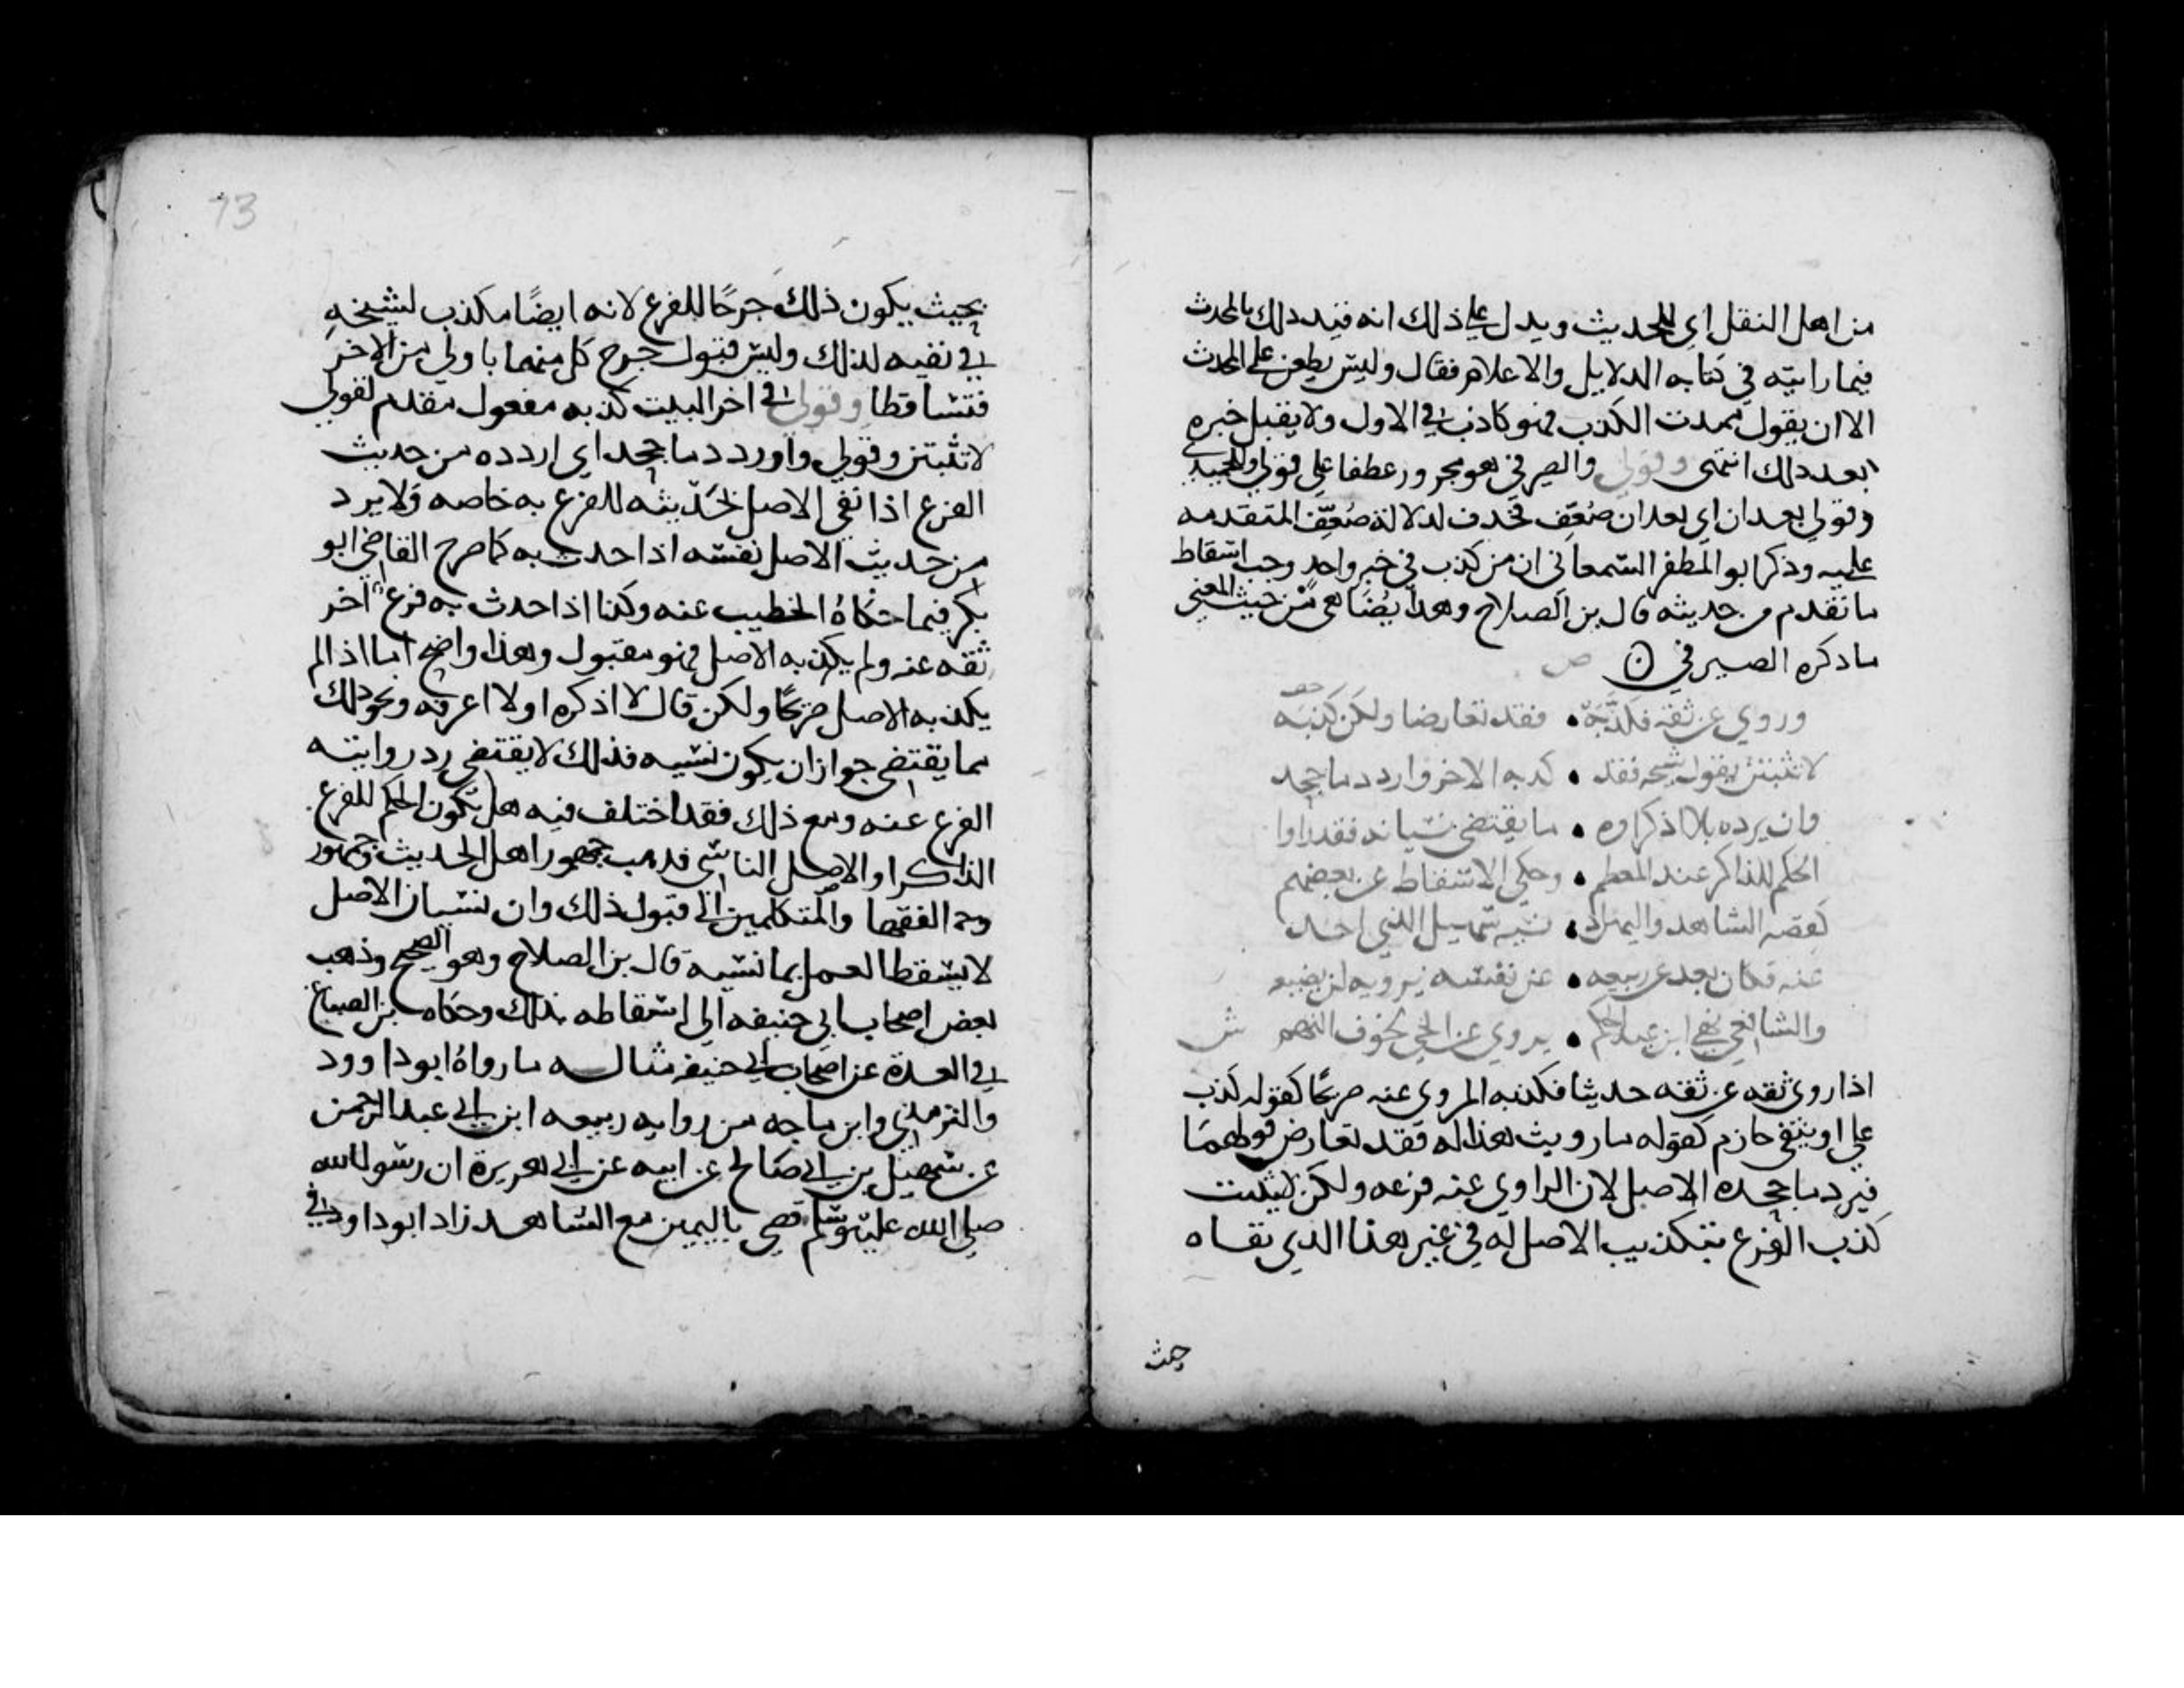 من اهل النقل اي للحديث ويدل على ذلك انه قيد ذلك بالمحدث
فيما رايته في كتابه الدلايل والاعلام فقال وليس يطعن على المحدث
الا ان يقول تعمدت الكذب فهو كاذب في الاول ولا يقبل خبره
بعد ذلك انتهى وقولي والصيرفي هو مجرور عطفا على قولي وللحميدي
وقولي بعد ان اي بعد ان ضعف فحذف لدلالة ضعف المتقدمه
عليه وذكر ابو المظفر السمعاني ان من كذب في خبر واحد وجب اسقاط
ما تقدم من حديثه قال بن الصلاح وهذا يضاهى من حيث المعنى
ما ذكره الصيرفي ص
وروي عن ثقه فكذبه • فقد تعارضا ولكن كذبه
لا تثبتن بقول شيخه فقد • كذبه الاخر واردد ما جحد
وان يرده بلا اذكر او • ما يقتضي نسيانه فقد راوا
الحكم للذاكر عند المعظم • وحكي الاسقاط عن بعضهم
كقصه الشاهد واليمين اذ • نسيه سهيل الذي اخذ
عنه فكان بعد عن ربيعه • عن نفسه يرويه لن يضيعه
والشافعي نهى ابن عبد الحكم • يروي عن الحي لخوف التهم ش
اذا روى ثقه عن ثقه حديثا فكذبه المروي عنه صريحًا كقوله كذب
علي او بنفي جازم كقوله ما رويت هذا له فقد تعارض قولهما
فيرد ما جحده الاصل لان الراوي عنه فرعه ولكن لا يثبت
كذب الفرع بتكذيب الاصل له في غير هذا الذي نفاه
بحيث
73
بحيث يكون ذلك جرحًا للفرع لانه ايضًا مكذب لشيخه
في نفيه لذلك وليس قبول جرح كل منهما باولى من الاخر
فتساقطا وقولي في اخر البيت كذبه مفعول مقدم لقولي
لا تثبتن وقولي واردد ما جحد اي اردده من حديث
الفرع اذا نفى الاصل تحديثه للفرع به خاصه ولا يرد
من حديث الاصل نفسه اذا حدث به كما صرح القاضي ابو
بكر فيما حكاه الخطيب عنه وكذا اذا حدث به فرع اخر
ثقه عنه ولم يكذبه الاصل فهو مقبول وهذا واضح اما اذا لم
يكذبه الاصل صريحًا ولكن قال لا اذكره او لا اعرفه ونحو ذلك
مما يقتضي جواز ان يكون نسيه فذلك لا يقتضي رد روايته
الفرع عنه ومع ذلك فقد اختلف فيه هل يكون الحكم للفرع
الذاكر او الاصل الناسي فذهب جمهور اهل الحديث وجمهور
الفقها والمتكلمين الى قبول ذلك وان نسيان الاصل
لا يسقط العمل بما نسيه قال بن الصلاح وهو الصحيح وذهب
بعض اصحاب ابي حنيفه الى اسقاطه بذلك وحكاه بن الصباغ
في العدة عن اصحاب ابي حنيفه مثاله ما رواه ابو داوود
والترمذي وابن ماجه من روايه ربيعه ابن ابي عبد الرحمن
عن سهيل بن ابي صالح عن ابيه عن ابي هريرة ان رسول الله
صلى الله عليه وسلم قضى باليمين مع الشاهد زاد ابو داود في